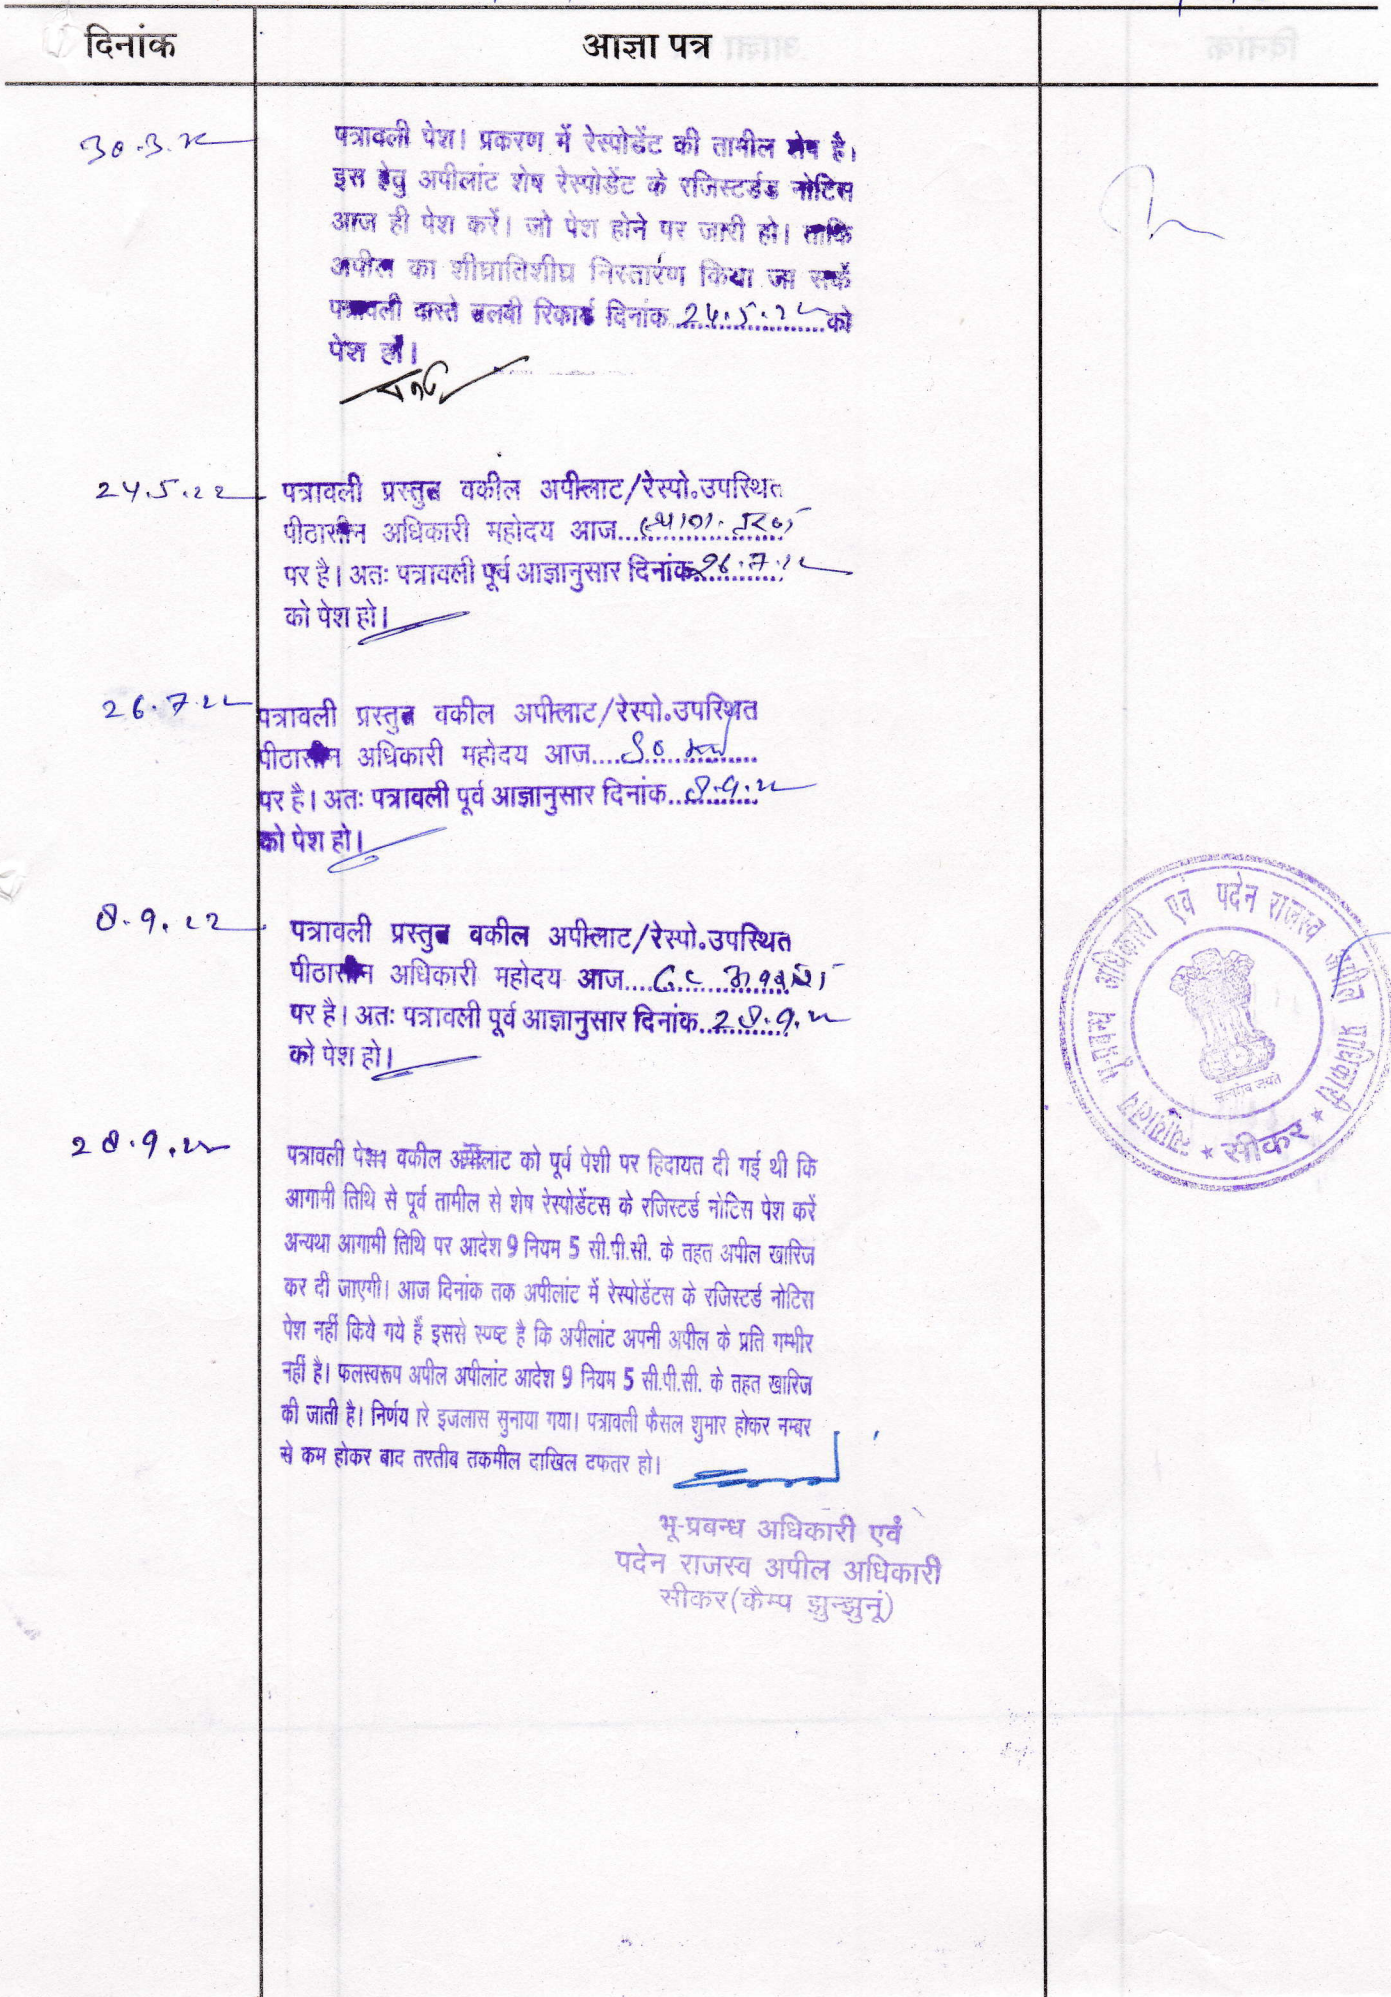 दिनांक
आज्ञा पत्र
30.3.22
पत्रावली पेश। प्रकरण में रेस्पोडेंट की तामील शेष है।
इस हेतु अपीलांट शेष रेस्पोडेंट के रजिस्टर्डड नोटिस
आज ही पेश करें। जो पेश होने पर जारी हो। ताकि
अपील का शीघ्रातिशीघ्र निस्तारण किया जा सकें
पत्रावली वास्ते तलबी रिकार्ड दिनांक 24.5.22 को
पेश हो।
24.5.22
पत्रावली प्रस्तुत वकील अपीलाट/रेस्पो.उपस्थित
पीठासीन अधिकारी महोदय आज....
पर है। अतः पत्रावली पूर्व आज्ञानुसार दिनांक 26.7.22
को पेश हो।
26.7.22
पत्रावली प्रस्तुत वकील अपीलाट/रेस्पो.उपस्थित
पीठासीन अधिकारी महोदय आज....
पर है। अतः पत्रावली पूर्व आज्ञानुसार दिनांक 8.9.22
को पेश हो।
8.9.22
पत्रावली प्रस्तुत वकील अपीलाट/रेस्पो.उपस्थित
पीठासीन अधिकारी महोदय आज....
पर है। अतः पत्रावली पूर्व आज्ञानुसार दिनांक 28.9.22
को पेश हो।
28.9.22
पत्रावली पेश। वकील अपीलांट को पूर्व पेशी पर हिदायत दी गई थी कि
आगामी तिथि से पूर्व तामील से शेष रेस्पोडेंटस के रजिस्टर्ड नोटिस पेश करें
अन्यथा आगामी तिथि पर आदेश 9 नियम 5 सी.पी.सी. के तहत अपील खारिज
कर दी जाएगी। आज दिनांक तक अपीलांट में रेस्पोडेंटस के रजिस्टर्ड नोटिस
पेश नहीं किये गये हैं इससे स्पष्ट है कि अपीलांट अपनी अपील के प्रति गम्भीर
नहीं है। फलस्वरूप अपील अपीलांट आदेश 9 नियम 5 सी.पी.सी. के तहत खारिज
की जाती है। निर्णय रे इजलास सुनाया गया। पत्रावली फैसल शुमार होकर नम्बर
से कम होकर बाद तरतीब तकमील दाखिल दफतर हो।
भू-प्रबन्ध अधिकारी एवं
पदेन राजस्व अपील अधिकारी
सीकर(कैम्प झुन्झुनूं)
न्यायालय भू-प्रबन्ध अधिकारी एवं पदेन राजस्व अपील प्राधिकारी
सत्यमेव जयते
★ सीकर ★